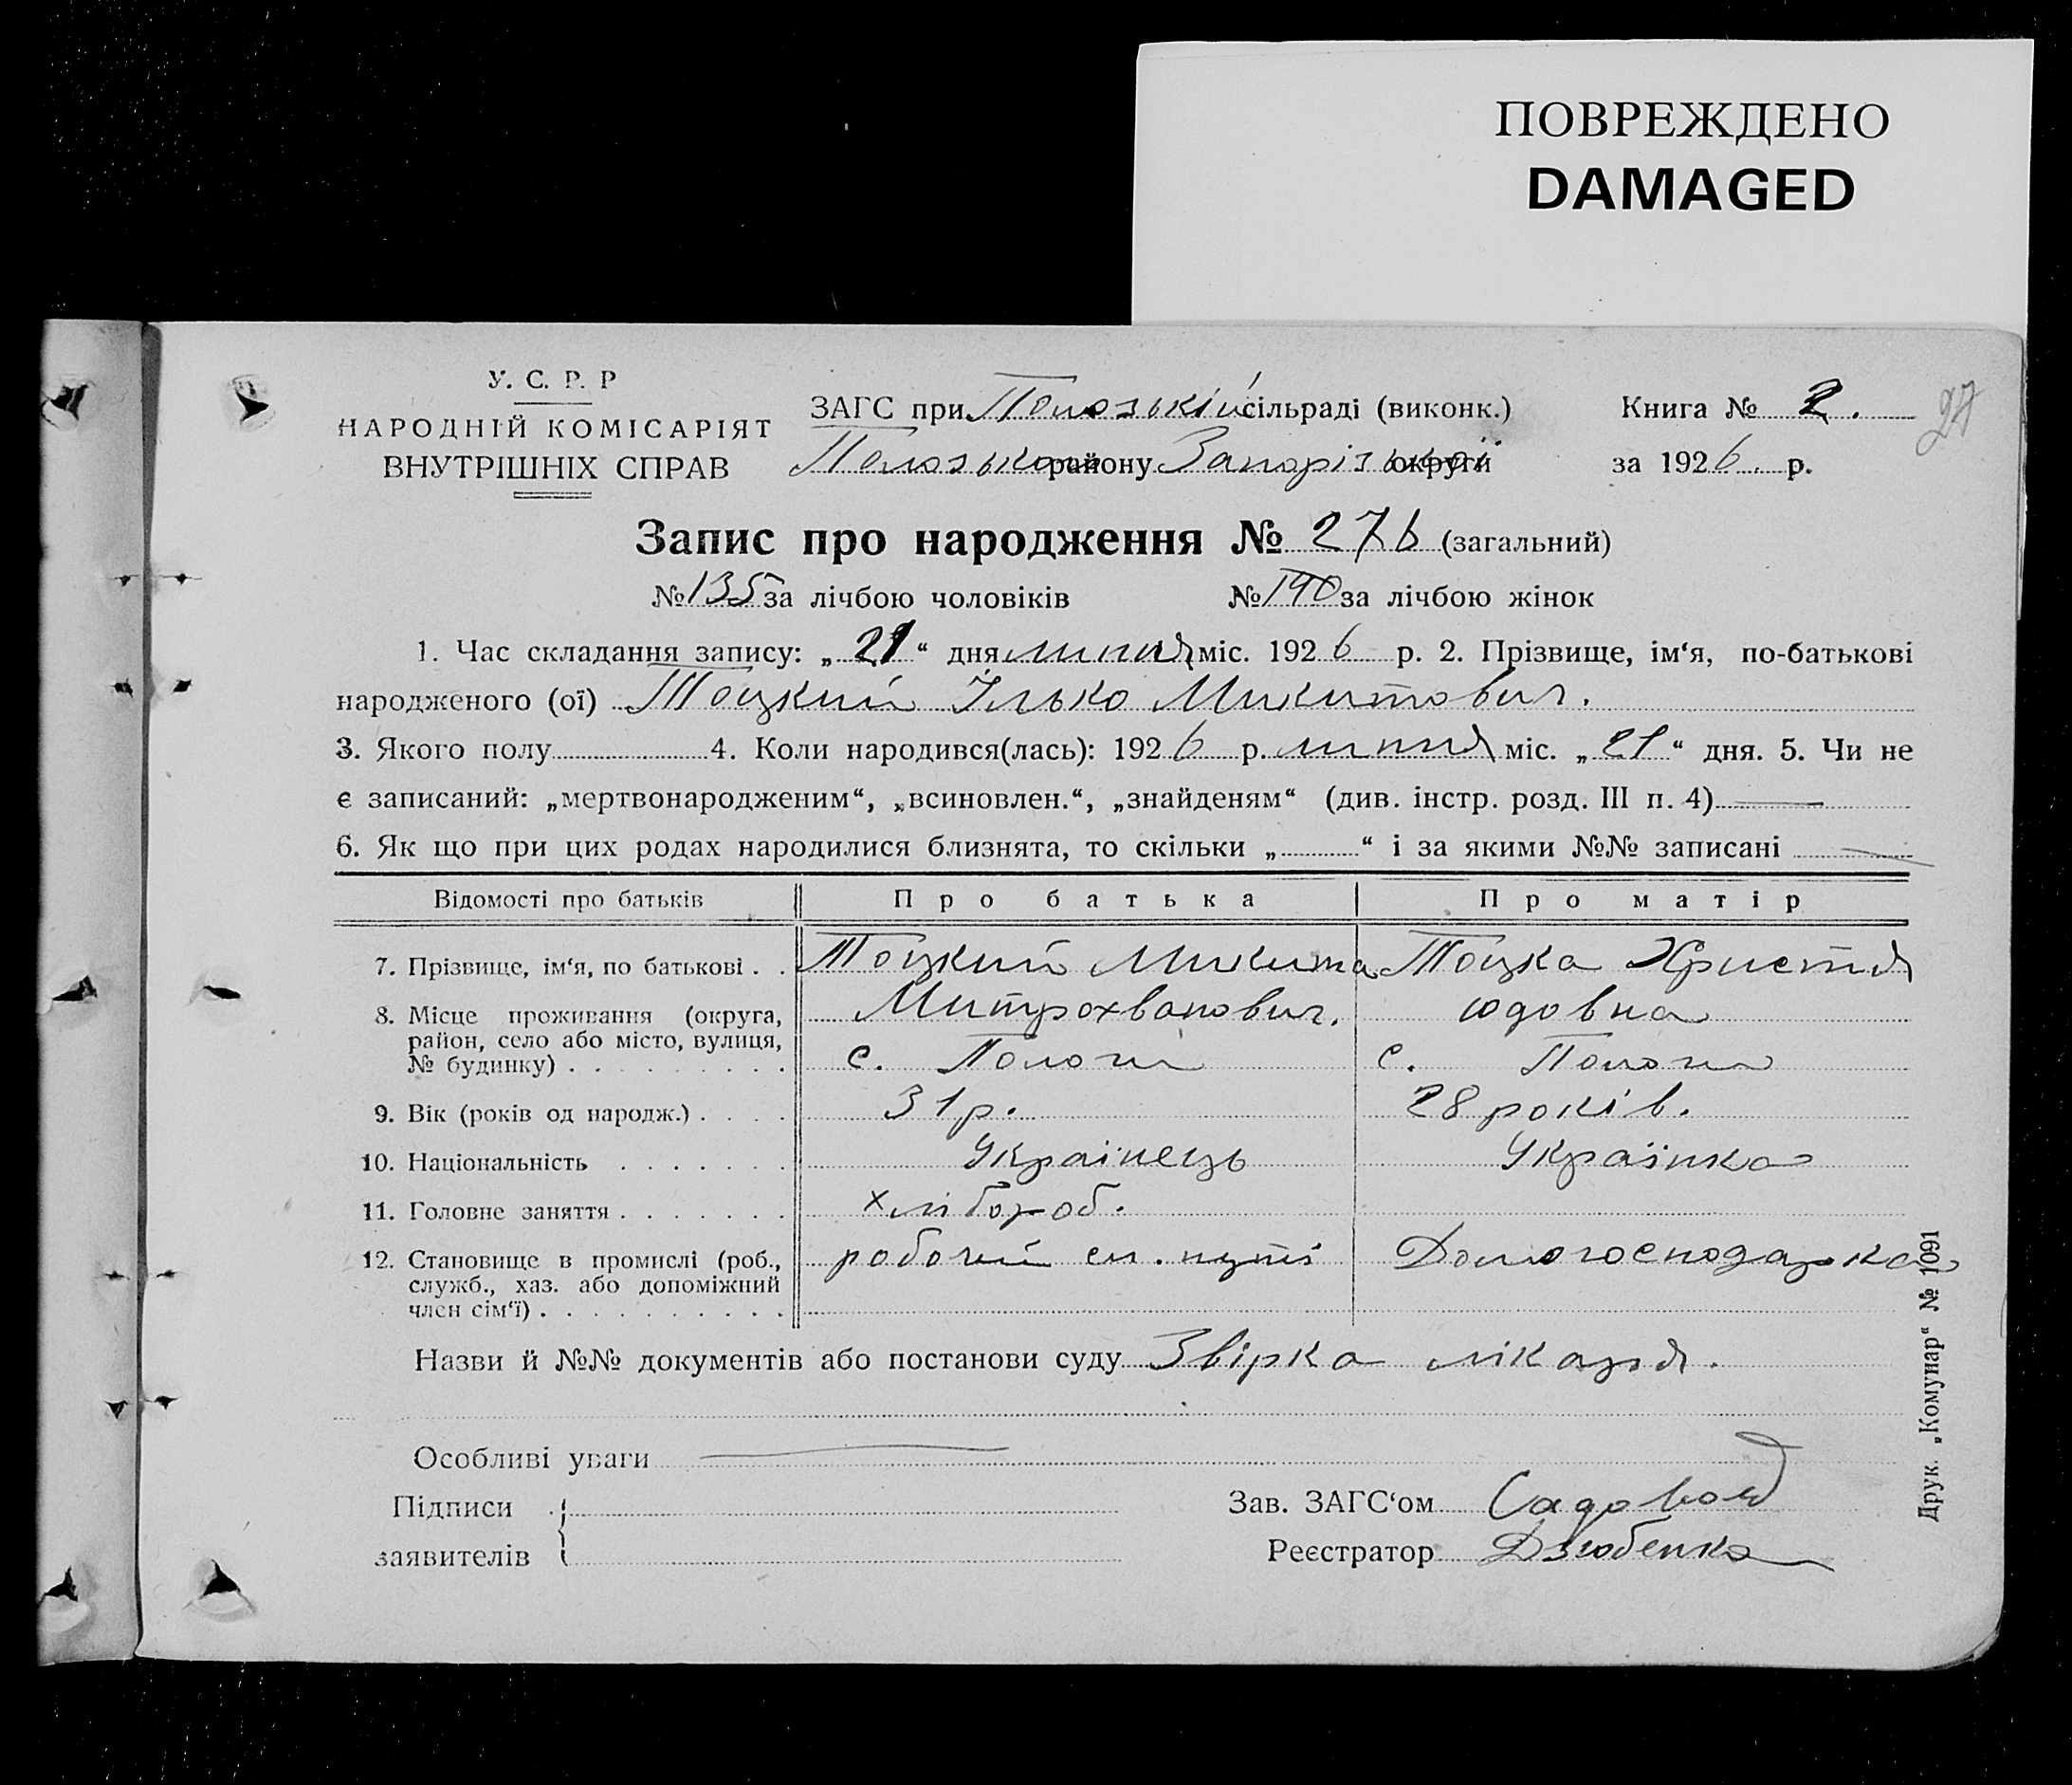 ПОВРЕЖДЕНО
DAMAGED
У. С. Р. Р
НАРОДНІЙ КОМІСАРІЯТ
ВНУТРІШНІХ СПРАВ
ЗАГС при Пологській сільраді (виконк.)
Пологського району Запорізької округи
Книга № 2.
за 1926. р.
27
Запис про народження № 276 (загальний)
№ 135 за лічбою чоловіків № 140 за лічбою жінок
1. Час складання запису: „21“ дня липня міс. 1926 р. 2. Прізвище, ім‘я, по-батькові
народженого (ої) Тоцкий Ілько Микитович.
3. Якого полу 4. Коли народився(лась): 1926 р. липня міс. „21“ дня. 5. Чи не
є записаний: „мертвонародженим“, „всиновлен.“, „знайденям“ (див. інстр. розд. III п. 4) —
6. Як що при цих родах народилися близнята, то скільки „ “ і за якими №№ записані —
Відомості про батьків Про батька Про матір
7. Прізвище, ім‘я, по батькові . . Тоцкий Микита Тоцка Христя
Митрохванович. юдовна
8. Місце проживання (округа,
район, село або місто, вулиця,
№ будинку) . . . . . . . . . с. Пологи с. Пологи
9. Вік (років од народж.) . . . . 31 р. 28 років.
10. Національність . . . . . . . Українець Українка
11. Головне заняття . . . . . . . хлібороб.
12. Становище в промислі (роб.,
служб., хаз. або допоміжний
член сім‘ї) . . . . . . . . . . робочий сл. путі Домогосподарка
Назви й №№ документів або постанови суду Звірка лікаря.
Особливі уваги —
Підписи
заявителів
Зав. ЗАГС‘ом
Реєстратор Дзюбенко
Друк. „Комунар“ № 1091